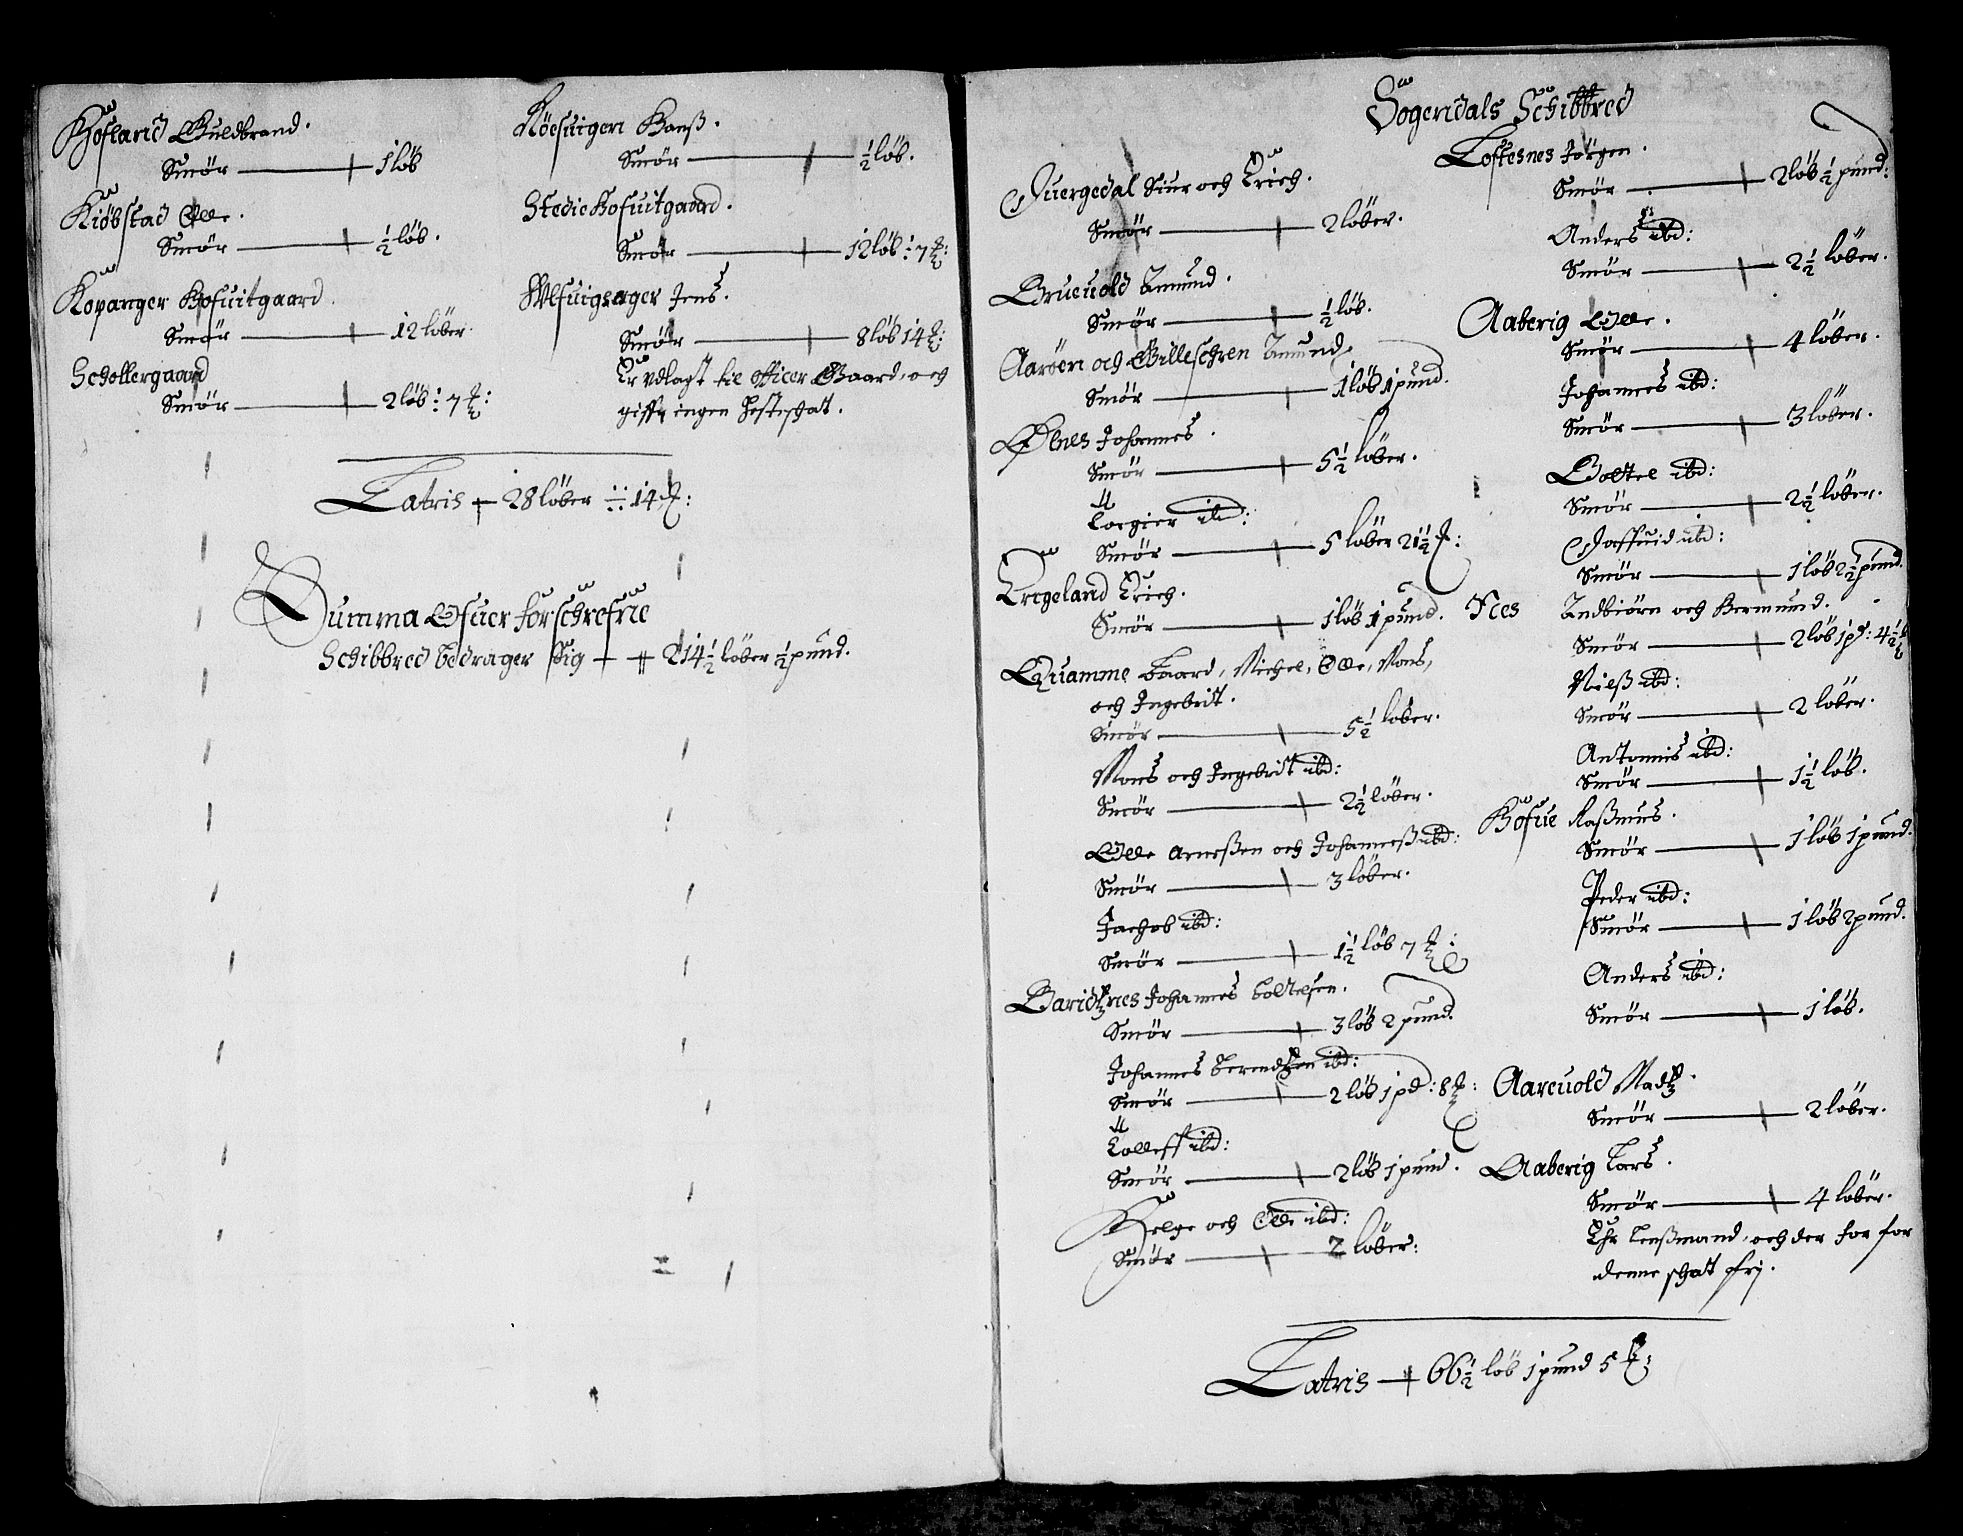 Höfland Guldbrand.
Smör 1 löb
Kiöbstad Olle.
Smör ½ löb.
Kopanger Hofuitgaard
Smör 12 löber.
Schollergaard
Smör 2 löb: 7 ℔:
Nöesuigen Hanß.
Smör ½ löb.
Stedie Hofuitgaard.
Smör 12 löb: 7 ℔:
Jens.
Smör 8 löb 14 ℔:
Er vdlagt til officer Gaard, och
giffr ingen hosteschat.
Latris 28 löber 14 ℔:
Summa Ofuer forschrefne
Schibbred bedrager Sig 214½ löber ½ pund.
Sögendals Schibbred
Quergedal Siur och Erich.
Smör 2 löber.
Grueuold Amund.
Smör ½ löb.
Aaröen och Gilleschren Amund.
Smör 1 löb 1 pund.
Ølnes Johannes.
Smör 5½ löber.
Torgier ibd:
Smör 5 löber 21½ ℔:
Engeland Erich.
Smör 1 löb 1 pund.
Quamme Baard, Michel, Olle, Mons,
och Ingebrit.
Smör 5½ löber.
Mons och Ingebrit ibd:
Smör 2½ löber.
Olle Arneßen och Johannes ibd:
Smör 3 löber.
Jachob ibd:
Smör 1½ löb 7 ℔:
Baridtznes Johannes Boltesen.
Smör 3 löb 2 pund.
Johannes Berendtzen ibd:
Smör 2 löb 1 pd: 8 ℔:
Tolleff ibd:
Smör 2 löb 1 pund.
Helge och Olle ibd:
Smör 2 löber:
Loftesnes Jörgen.
Smör 2 löb ½ pund:
Anders ibd:
Smör 2½ löber.
Aaberig Olle.
Smör 4 löber.
Johannes ibd:
Smör 3 löber.
Boltel ibd:
Smör 2½ löber.
Jaffuid ibd:
Smör 1 löb 2½ pund.
Nes Indbiörn och Germund.
Smör 2 löb 1 pd: 4½ ℔
Nielß ibd:
Smör 2 löber.
Antonnis ibd:
Smör 1½ löb.
Höfue Raßmus.
Smör 1 löb 1 pund.
Peder ibd:
Smör 1 löb 2 pund.
Anders ibd:
Smör 1 löb.
Aareuold Madtz.
Smör 2 löber.
Aaberig Lars.
Smör 4 löber.
Ehr Lenßmand, och der for for
denne schatt frj.
Latris 66½ löb 1 pund 5 ℔: